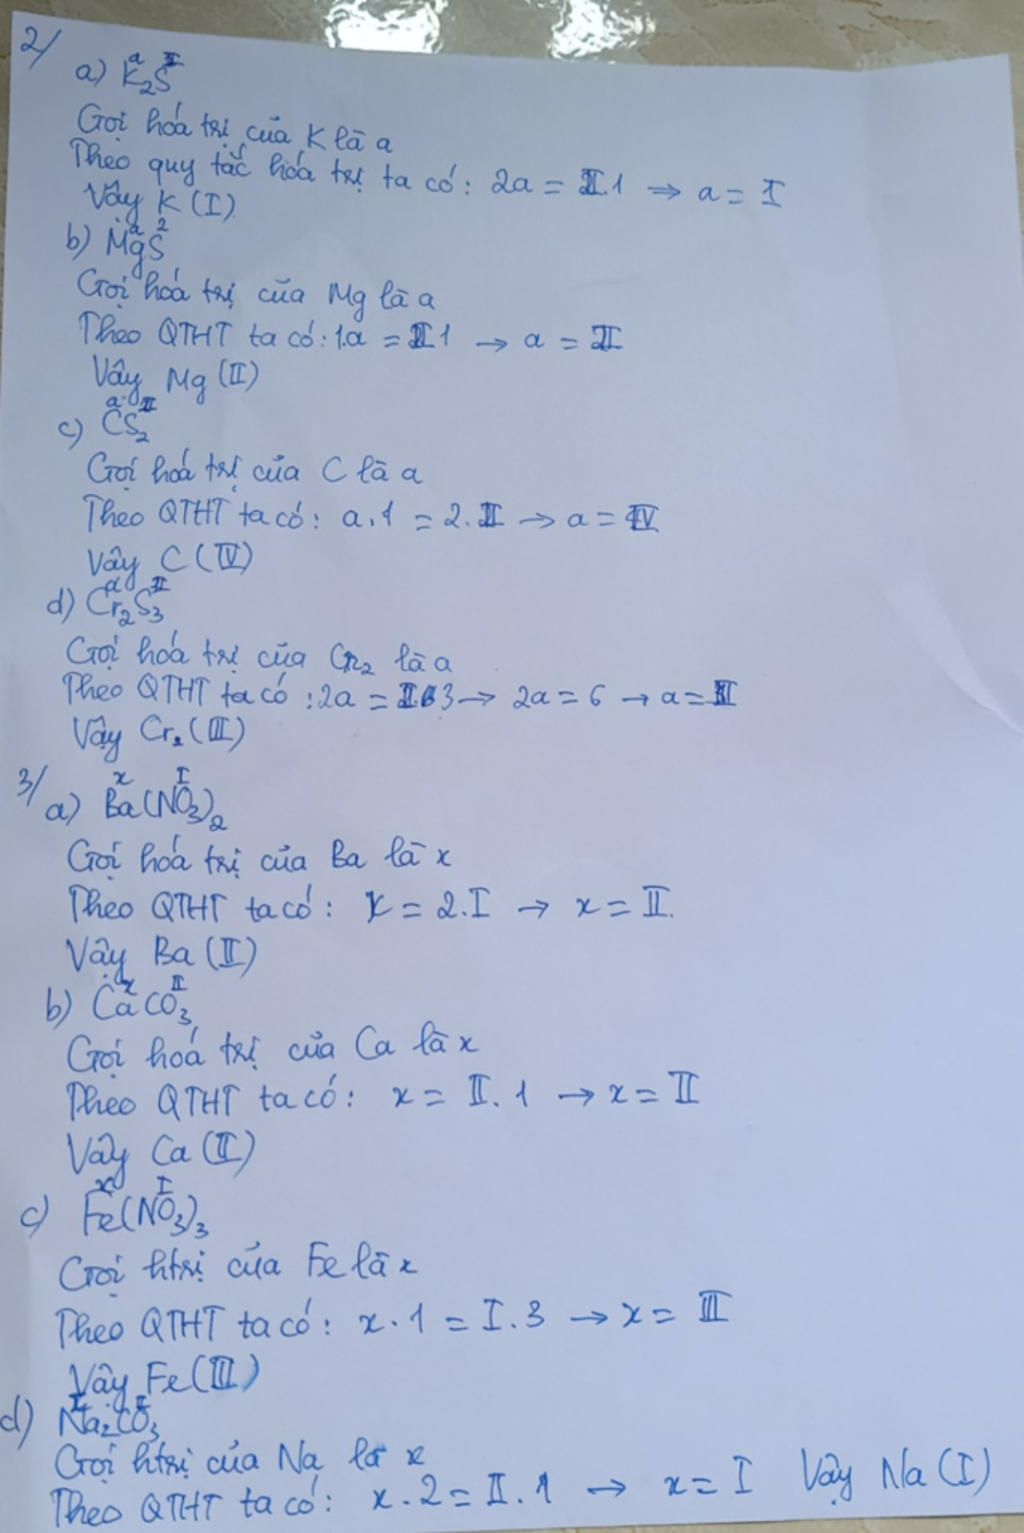 2/
a) K₂S
a II
Gọi hóa trị của K là a
Theo quy tắc hóa trị ta có: 2a = II.1 ⇒ a = I
Vậy K (I)
b) MgS
a 2
Gọi hóa trị của Mg là a
Theo QTHT ta có: 1.a = II.1 → a = II
Vậy Mg (II)
c) CS₂
a II
Gọi hoá trị của C là a
Theo QTHT ta có: a.1 = 2.II → a = IV
Vậy C (IV)
d) Cr₂S₃
a II
Gọi hoá trị của Cr₂ là a
Theo QTHT ta có: 2a = II.3 → 2a = 6 → a = III
Vậy Cr₂ (III)
3/
a) Ba(NO₃)₂
x I
Gọi hoá trị của Ba là x
Theo QTHT ta có: x = 2.I → x = II.
Vậy Ba (II)
b) CaCO₃
x II
Gọi hoá trị của Ca là x
Theo QTHT ta có: x = II.1 → x = II
Vậy Ca (II)
c) Fe(NO₃)₃
x I
Gọi htrị của Fe là x
Theo QTHT ta có: x.1 = I.3 → x = III
Vậy Fe (III)
d) Na₂CO₃
Gọi htrị của Na là x
Theo QTHT ta có: x.2 = II.1 → x = I Vậy Na (I)